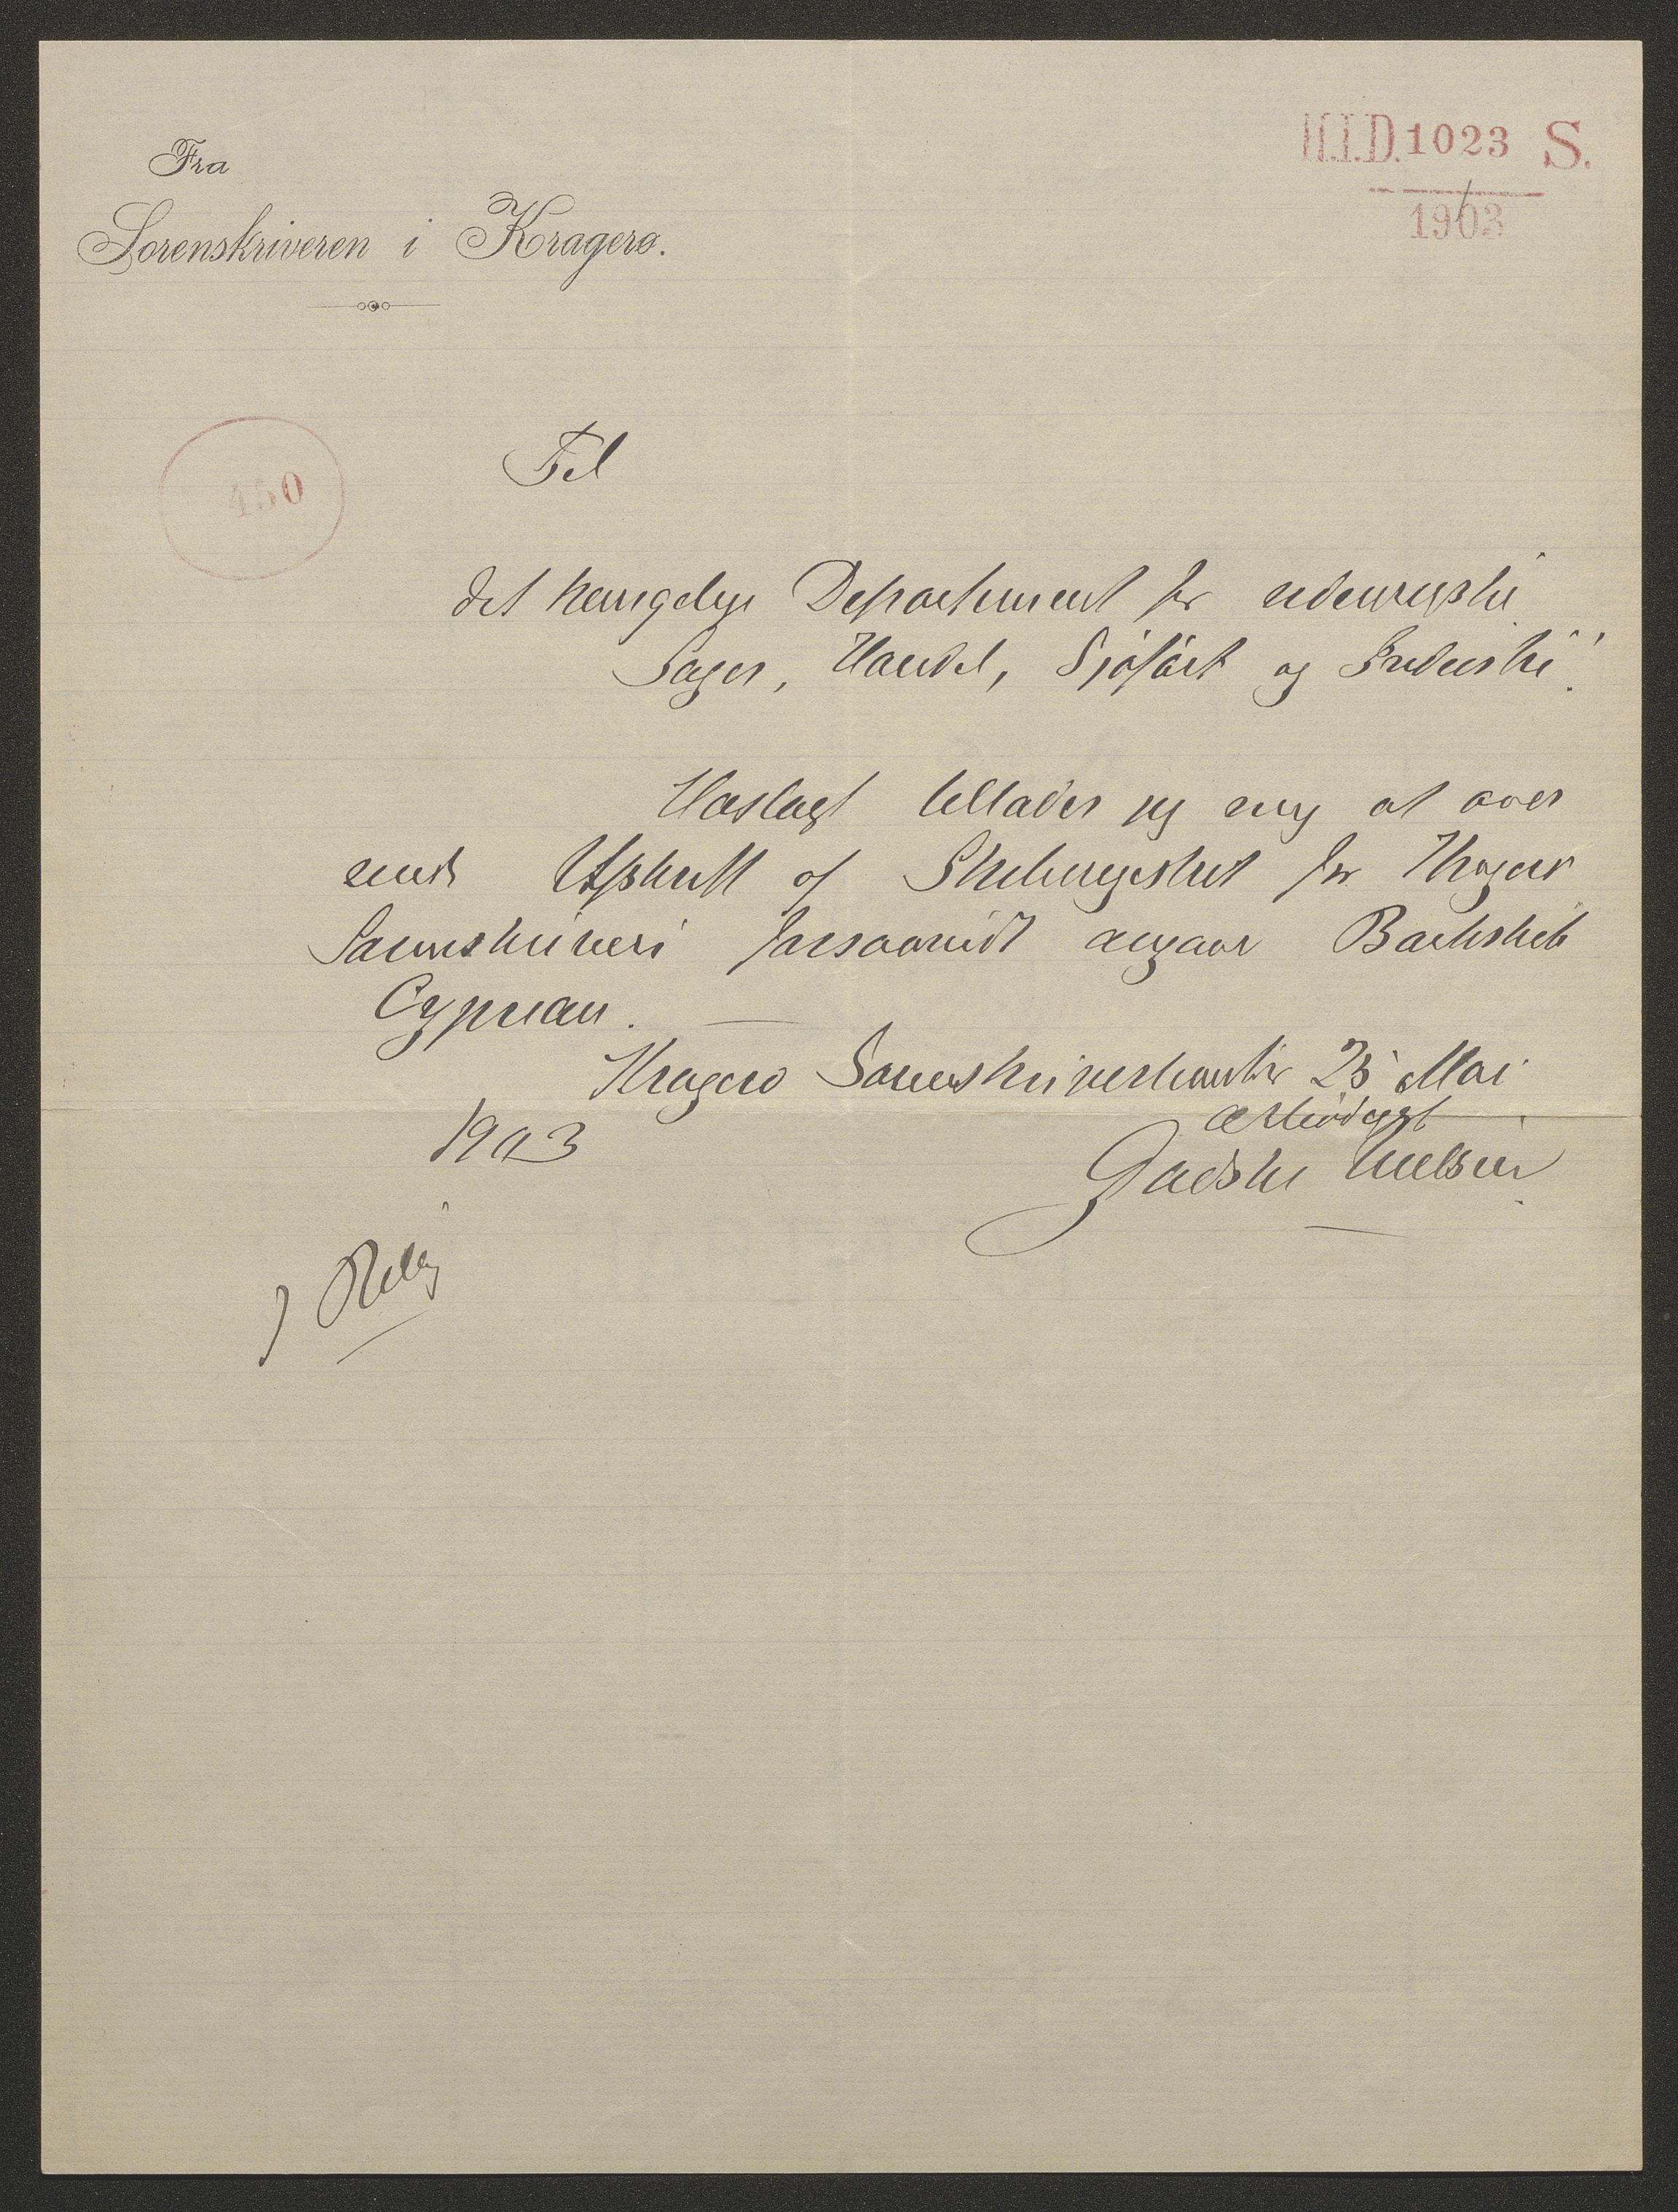 H.I.D. 1023 S.
1903
Fra
Sorenskriveren i Kragerø.
450
Til
det kongelige Departement for udenrigske
Sager, Handel, Sjöfart og Industri.
Hoslagt tillader jeg mig at over
sende Udskrift af Skiftningsret for Kragerø
Sorenskriveri forsaavidt angaar Barkskib
Cyprian.
Kragerø Sorenskriverkontor 25 Mai
1903
ærbødigst
Gadske Nielsen